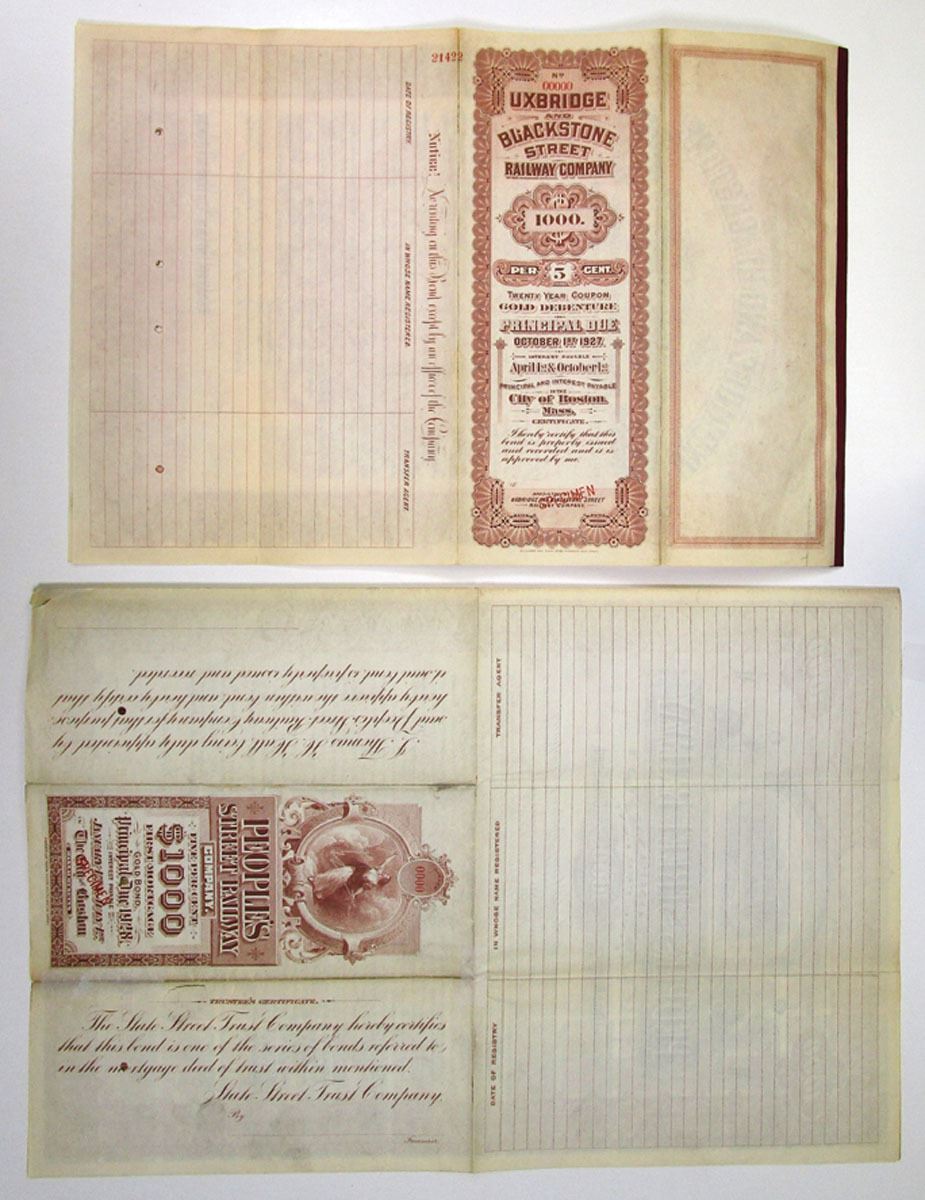 21422
No
00000
UXBRIDGE
AND
BLACKSTONE
STREET
RAILWAY COMPANY
$
1000.
PER 5 CENT.
TWENTY YEAR COUPON
GOLD DEBENTURE
PRINCIPAL DUE
OCTOBER 1ST 1927.
INTEREST PAYABLE
April 1st & October 1st
PRINCIPAL AND INTEREST PAYABLE
IN THE
City of Boston,
Mass.
CERTIFICATE.
I hereby certify that this
bond is properly issued
and recorded and it is
approved by me.
SPECIMEN
UXBRIDGE AND BLACKSTONE STREET
RAILWAY COMPANY
DATE OF REGISTRY.
IN WHOSE NAME REGISTERED.
TRANSFER AGENT.
Notice! No writing on this Bond except by an officer of the Company
I, Thomas W. Hall, being duly appointed by
said People's Street Railway Company for that purpose,
hereby approve the within bond, and hereby certify that
said bond is properly issued and recorded.
0000
PEOPLE'S
STREET RAILWAY
COMPANY.
FIVE PER CENT
FIRST MORTGAGE
$1000
GOLD BOND.
Principal Due 1928.
INTEREST PAYABLE
The City of Boston
SPECIMEN
TRUSTEE'S CERTIFICATE.
The State Street Trust Company hereby certifies
that this bond is one of the series of bonds referred to,
in the mortgage deed of trust within mentioned.
State Street Trust Company,
By
Treasurer
TRANSFER AGENT
IN WHOSE NAME REGISTERED
DATE OF REGISTRY